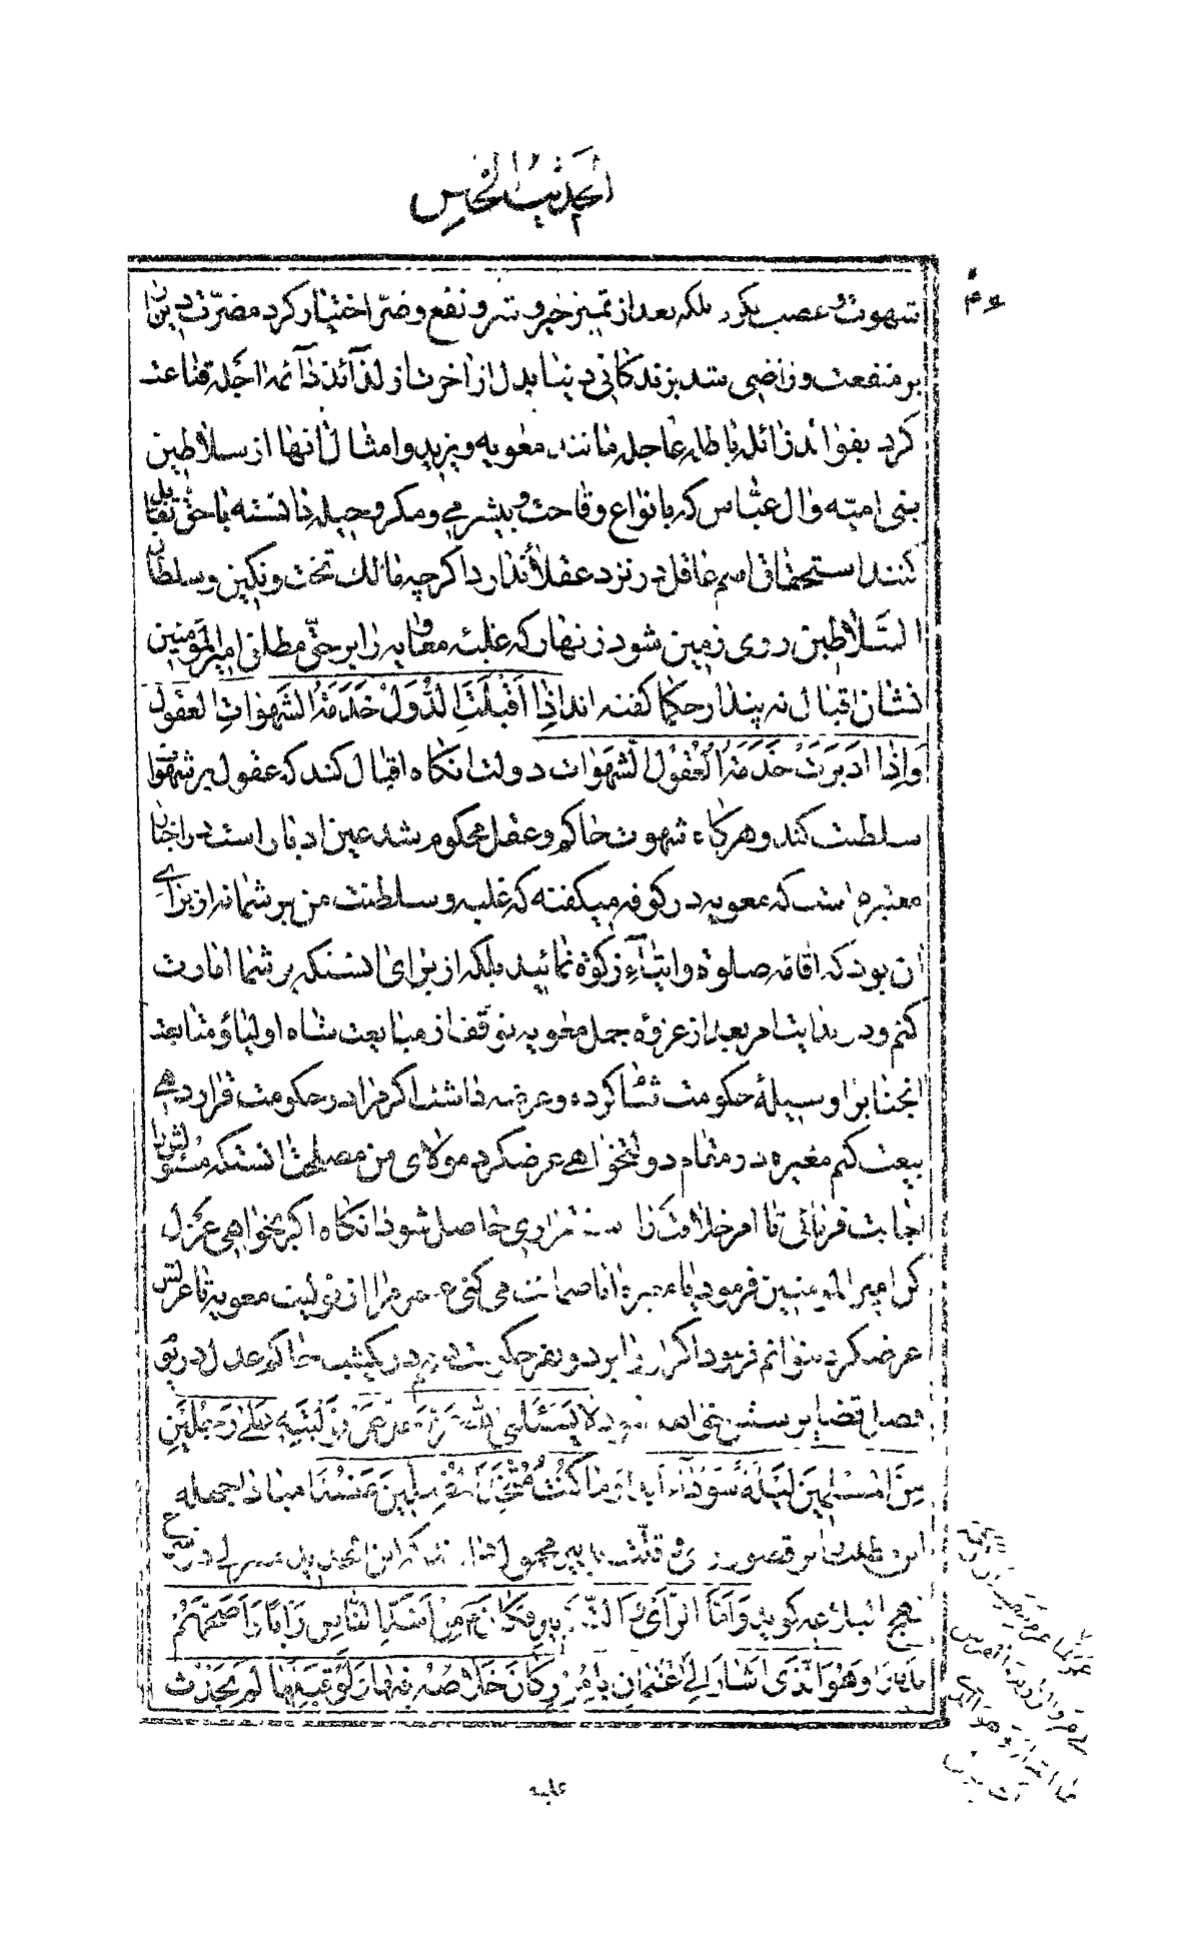 الحدیث الخامس
شهوت و عصب بکرد بلکه بعد از تمیز خیر و شر و نفع و ضر اختیار کرد مضرت دین را
بر منفعت و راضی شد بزندکانی دنیا بدل از اخرت از لذائذ دائمه اجله قناعت
کرد بفوائد زائله باطله عاجله مانند معویه و یزید و امثال انها از سلاطین
بنی امیه و ال عباس که بانواع وقاحت و بیشرمی و مکر و حیله دانسته با حق تقابل
کنند استحقاق اسم عاقل در نزد عقلا ندارد اکرچه مالک تخت و نکین و سلطان
السلاطین روی زمین شود زنهار که غلبه معاویه را بر حق مطلق امیرالمؤمنین
نشان اقبال نه پندار حکما کفته اند اِذا اَقْبَلَتِ الدُّوَلُ خَدَمَتُ الشَّهَواتِ العُقولُ
وَاِذا اَدْبَرَتْ خَدَمَتُ الْعُقُولُ الشَّهَوات دولت انکاه اقبال کند که عقول بر شهوات
سلطنت کند و هرکاه شهوت حاکم و عقل محکوم شد عین ادبار است در اخبار
معتبره است که معویه در کوفه میکفته که غلبه و سلطنت من بر شما نه از برای
ان بود که اقامه صلوة و ایتاء زکوة نمائید بلکه از برای انستکه بر شما امارت
کنم و در بدایت امر بعد از غزوه جمل معویه توقف از مبایعت شاه اولیا و متابعت
انجناب را وسیلهٔ حکومت شام کرده و عرضه داشت اکر مرا در حکومت قرار دهی
بیعت کنم مغیره در مقام دولتخواهی عرضکرد مولای من مصلحت انستکه مسئولش را
اجابت فرمائی تا امر خلافت را استقراری حاصل شود انکاه اکر بخواهی عزل
کن امیرالمؤمنین فرمود یا مغیره ایا ضمانت می کنی عمر مرا از تولیت معویه تا عزلش
عرضکرد نتوانم فرمود اکر او را بر دو نفر حکومت دهم در یکشب حاکم عدل در یوم
فصل قضا پرسش خواهد نمود لا یَسْئَلُنی اللهُ عَزَّ وَ جَلَّ عَنْ تَوْلِیَتِهِ عَلی رَجُلَیْنِ
مِنَ الْمُسْلِمینَ لَیْلَةً سَوْداءَ اَبَداً وَما کُنْتُ مُتَّخِذَ الْمُضِلّینَ عَضُداً مبادا جهله
این مطلب را بر قصور رای و قلت تدبیر محمول
نهج البلاغه کوید وَاَمَّا الرَّأیُ وَ التَّدْبیر فَکانَ مِنْ اَسَدِّ النّاسِ رَأیاً وَ اَصَحِّهِمْ
تدبیراً وَهُوَ الَّذی اَشارَ اِلی عُثْمانَ بِاُمُورٍ کانَ خَلاصُهُ فیها وَ لَوْ قَبِلَها لَمْ یَحْدُثْ
علیه